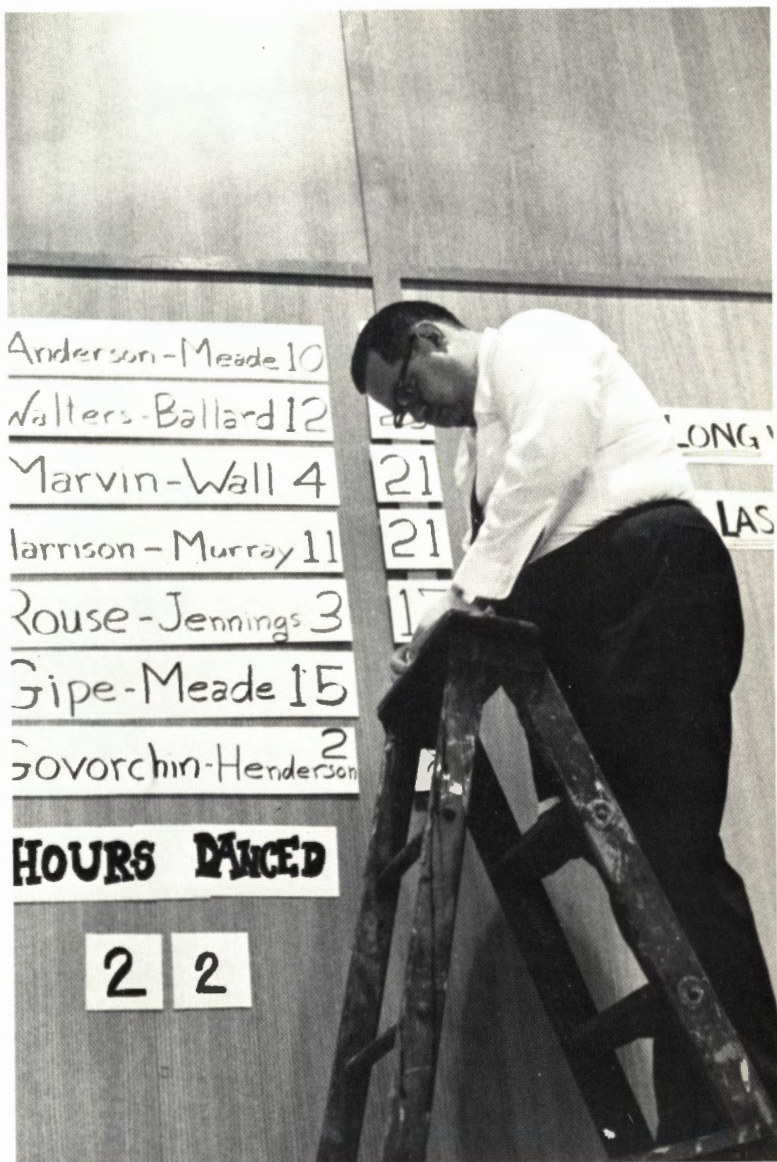 Anderson-Meade 10
Walters-Ballard 12
Marvin-Wall 4 21
Harrison-Murray 11 21
Rouse-Jennings 3
Gipe-Meade 15
Govorchin-Henderson 2
HOURS DANCED
2 2
LONG
LAS